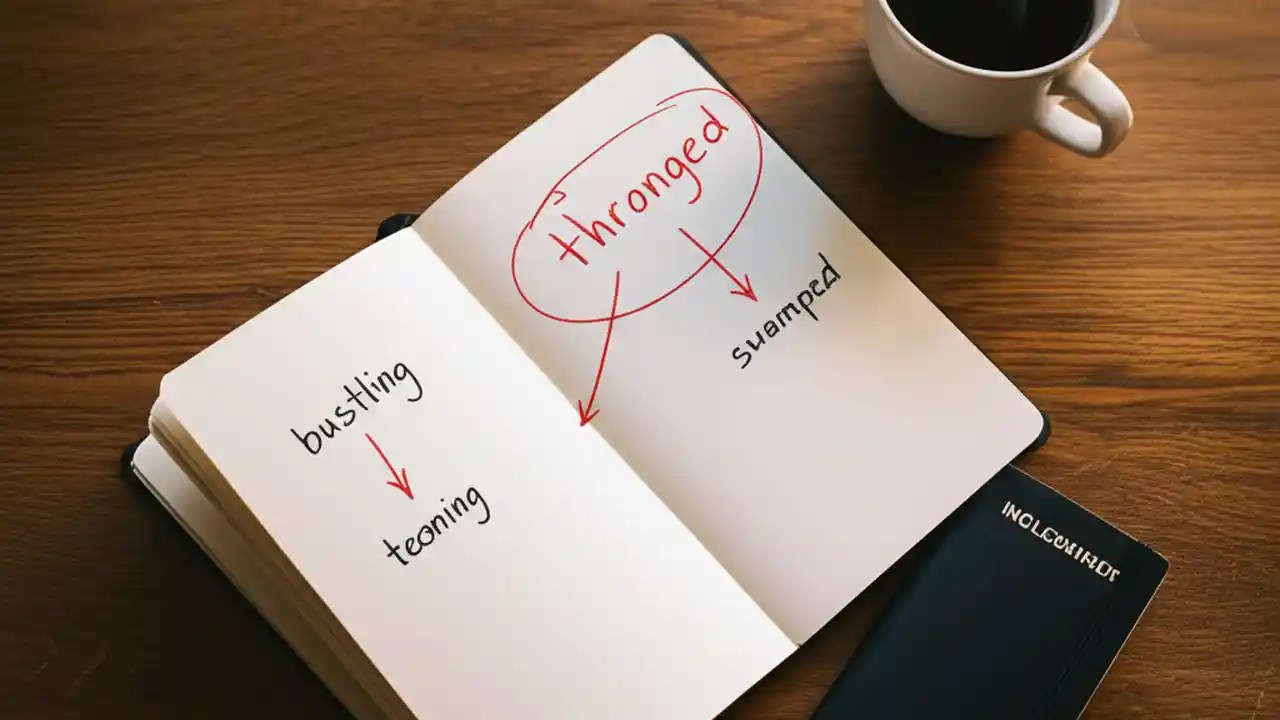 bustling
teoning
thronged
swamped